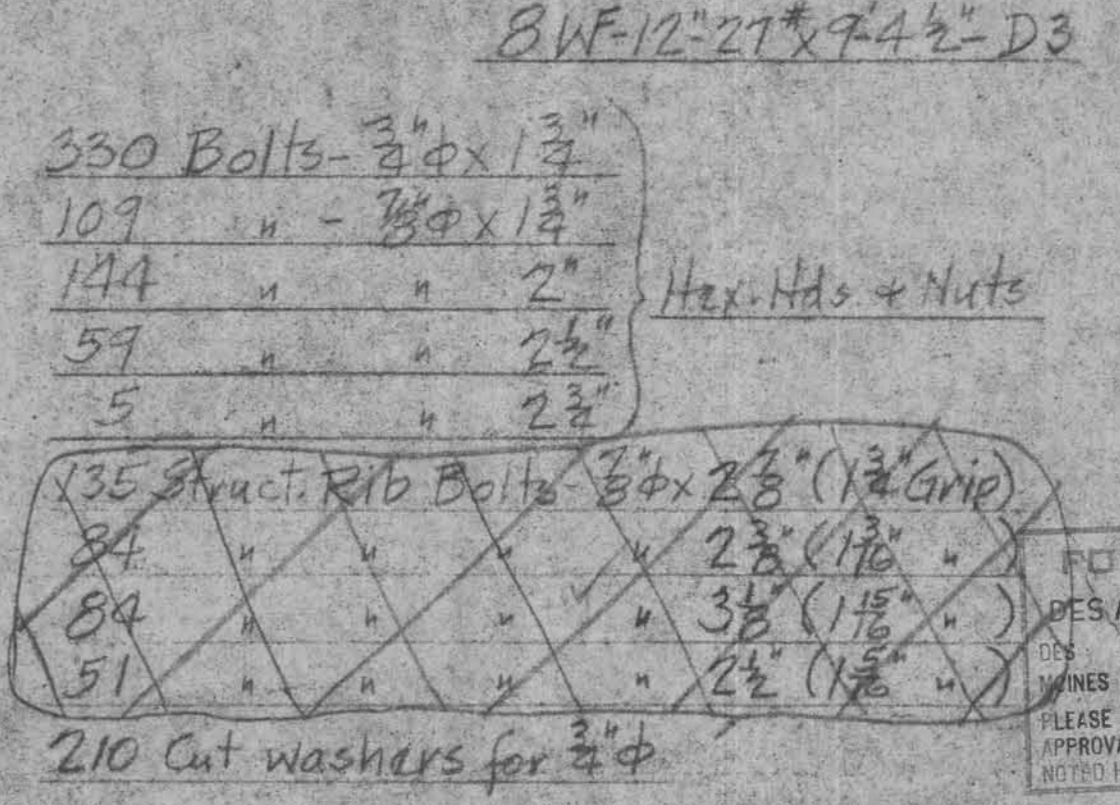 8 WF-12"-27#x9'-4 1/2"-D3
330 Bolts- 3/4"ϕ x 1 3/4"
109 " - 7/8"ϕ x 1 3/4"
144 " " 2"
59 " " 2 1/2"
5 " " 2 3/4"
Hex. Hds. & Nuts
135 Struct. Rib Bolts- 7/8"ϕx 2 7/8" (1 3/4" Grip)
84 " " " " 2 3/8" (1 3/16" " )
84 " " " " 3 1/8" (1 15/16" " )
51 " " " " 2 1/2" (1 5/16" " )
210 Cut washers for 3/4"ϕ
DES
DES
MOINES
PLEASE
APPROVA
NOTED H